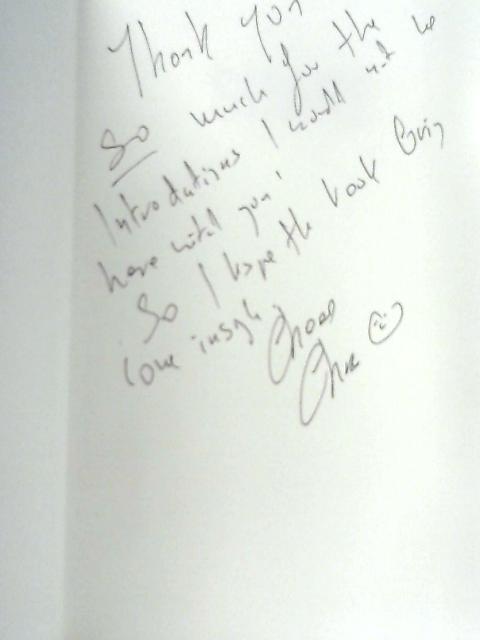 Thank you
So much for the
Introductions I would not be
here without you!
So I hope the book bring
some insigh
Cheers